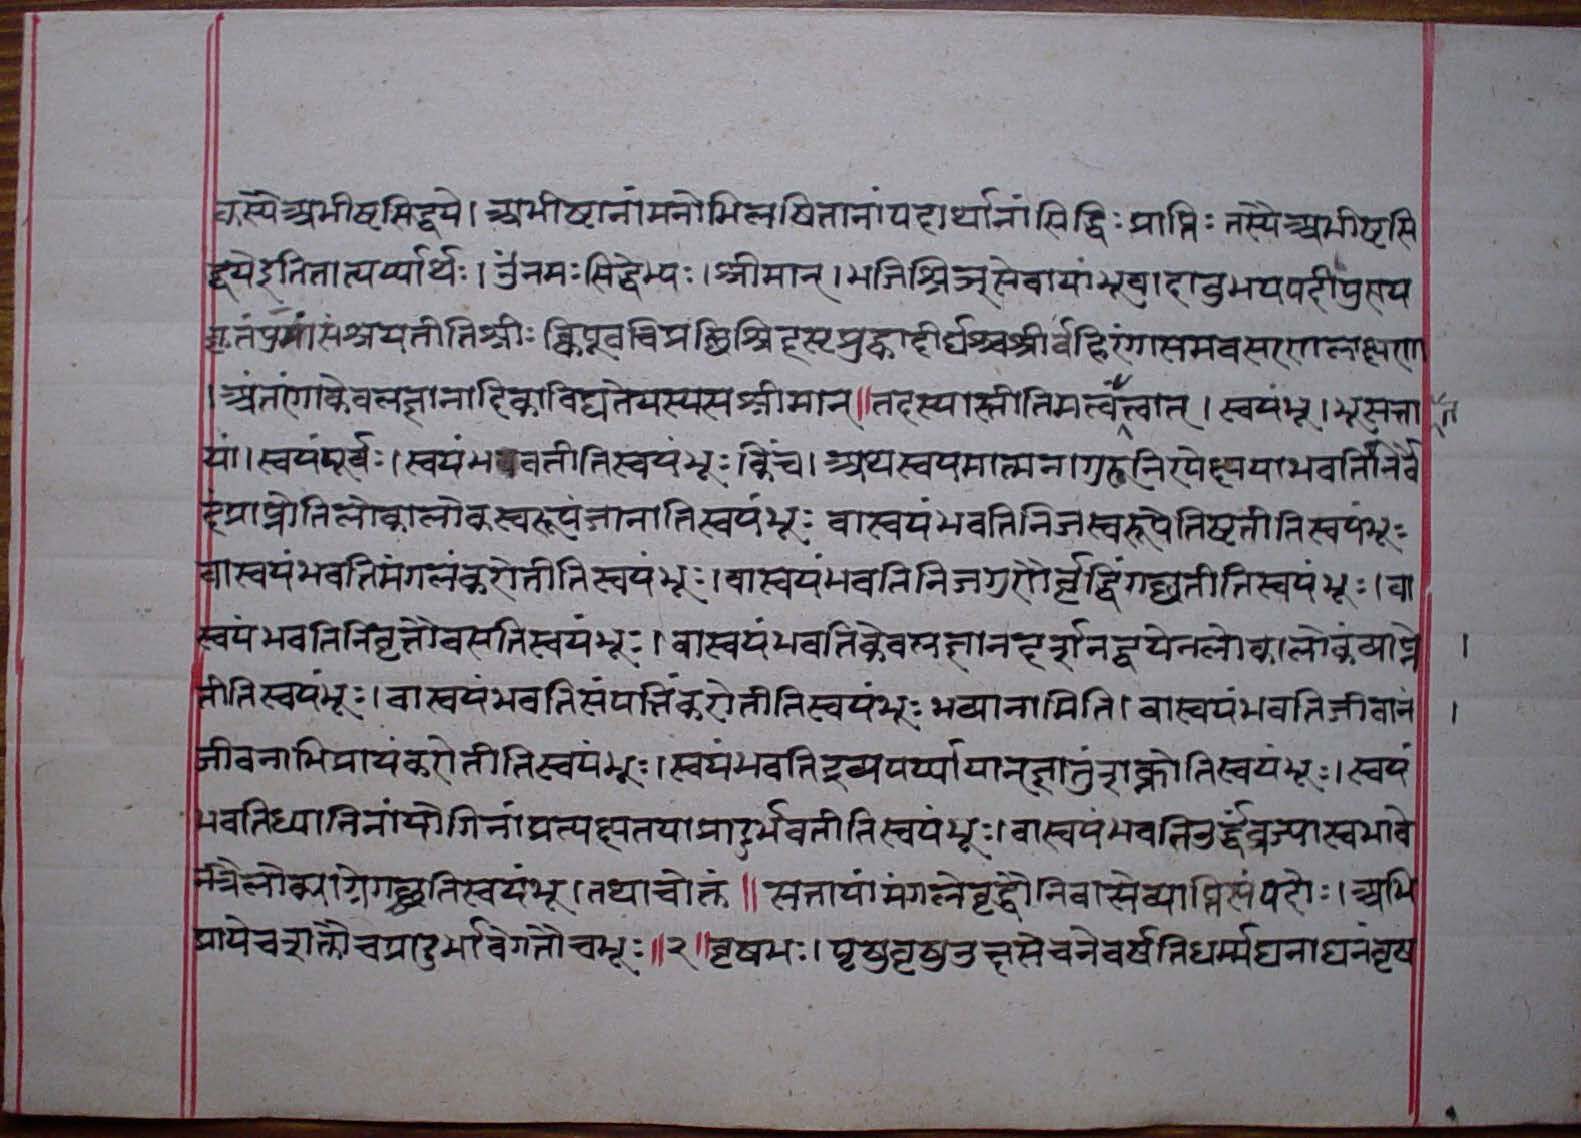 कस्यै अभीष्टसिद्धये। अभीष्टानांमनोभिलषितानांपदार्थानांसिद्धिः प्राप्तिः तस्यै अभीष्टसि
द्धयेइतितात्पर्य्यार्थः। ॐनमःसिद्धेभ्यः।श्रीमान्।भजिश्रिञ्सेवायांभ्वादाउभयपदी
पुमांसंश्रयतीतिश्रीः क्विप् दीर्घश्चश्रीर्बहिरंगासमवसरणलक्षणा
।अंतरंगाकेवलज्ञानादिकाविद्यतेयस्यसश्रीमान्॥तदस्यास्तीतिमत्वंत्वात्।स्वयंभू।भूसत्ता
यां।स्वयंपूर्वः।स्वयंभवतीतिस्वयंभूः किंच।अथस्वयमात्मनागुरुनिरपेक्षयाभवतिनिर्वे
दंप्राप्नोतिलोकालोकस्वरूपंजानातिस्वयंभूः वास्वयंभवतिनिजस्वरूपेतिष्टतीतिस्वयंभूः
वास्वयंभवतिमंगलंकरोतीतिस्वयंभूः।वास्वयंभवतिनिजगुणैर्वृद्धिंगछतीतिस्वयंभूः।वा
स्वयंभवतिनिवृत्तौवसतिस्वयंभूः।वास्वयंभवतिकेवलज्ञानदर्शनद्वयेनलोकालोकंव्याप्नो ।
तीतिस्वयंभूः।वास्वयंभवतिसंपत्तिंकरोतीतिस्वयंभूः भव्यानामिति।वास्वयंभवतिजीवानं ।
जीवनाभिप्रायंकरोतीतिस्वयंभूः।स्वयंभवतिद्रव्यपर्य्यायान्ज्ञातुंशक्नोतिस्वयंभूः।स्वयं
भवतिध्यानिनांयोगिनांप्रत्यक्षतयाप्रादुर्भवतीतिस्वयंभूः।वास्वयंभवतिउर्द्ध्वंव्रज्यास्वभावे
नत्रैलोक्याग्रेगछतिस्वयंभू।तथाचोक्तं ॥ सत्तायांमंगलेवृद्धौनिवासेव्याप्तिसंपदोः।अभि
प्रायेचशक्तौचप्रादुर्भावेगतौचभूः॥२॥वृषभः।पृषुवृषुउक्षसेचनेवर्षतिधर्म्मघनाघनंवृष